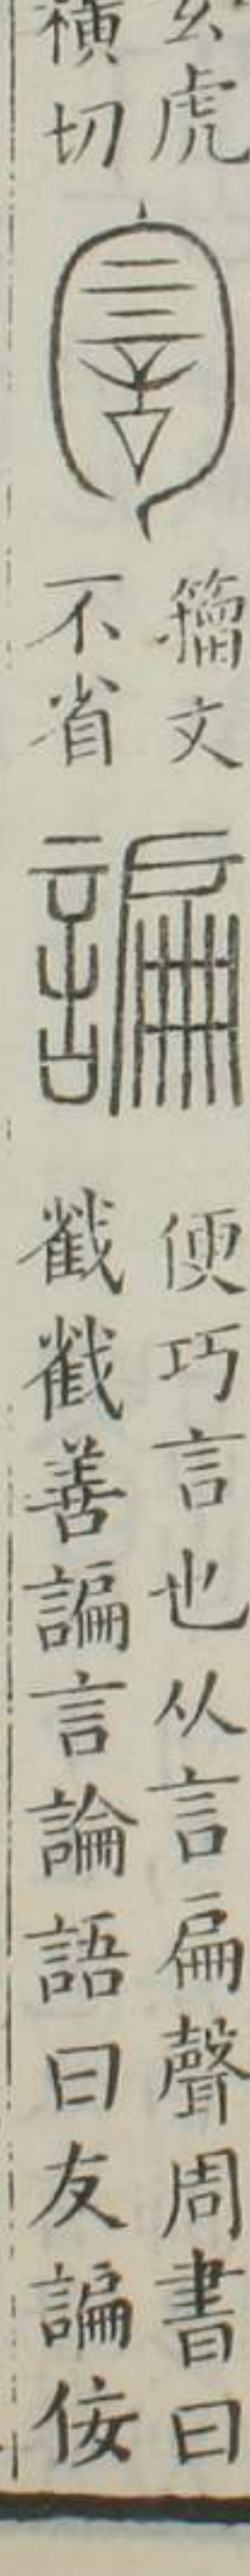 玄虎
橫切
籒文
不省
諞
便巧言也从言扁聲周書曰
戳戳善諞言論語曰友諞佞